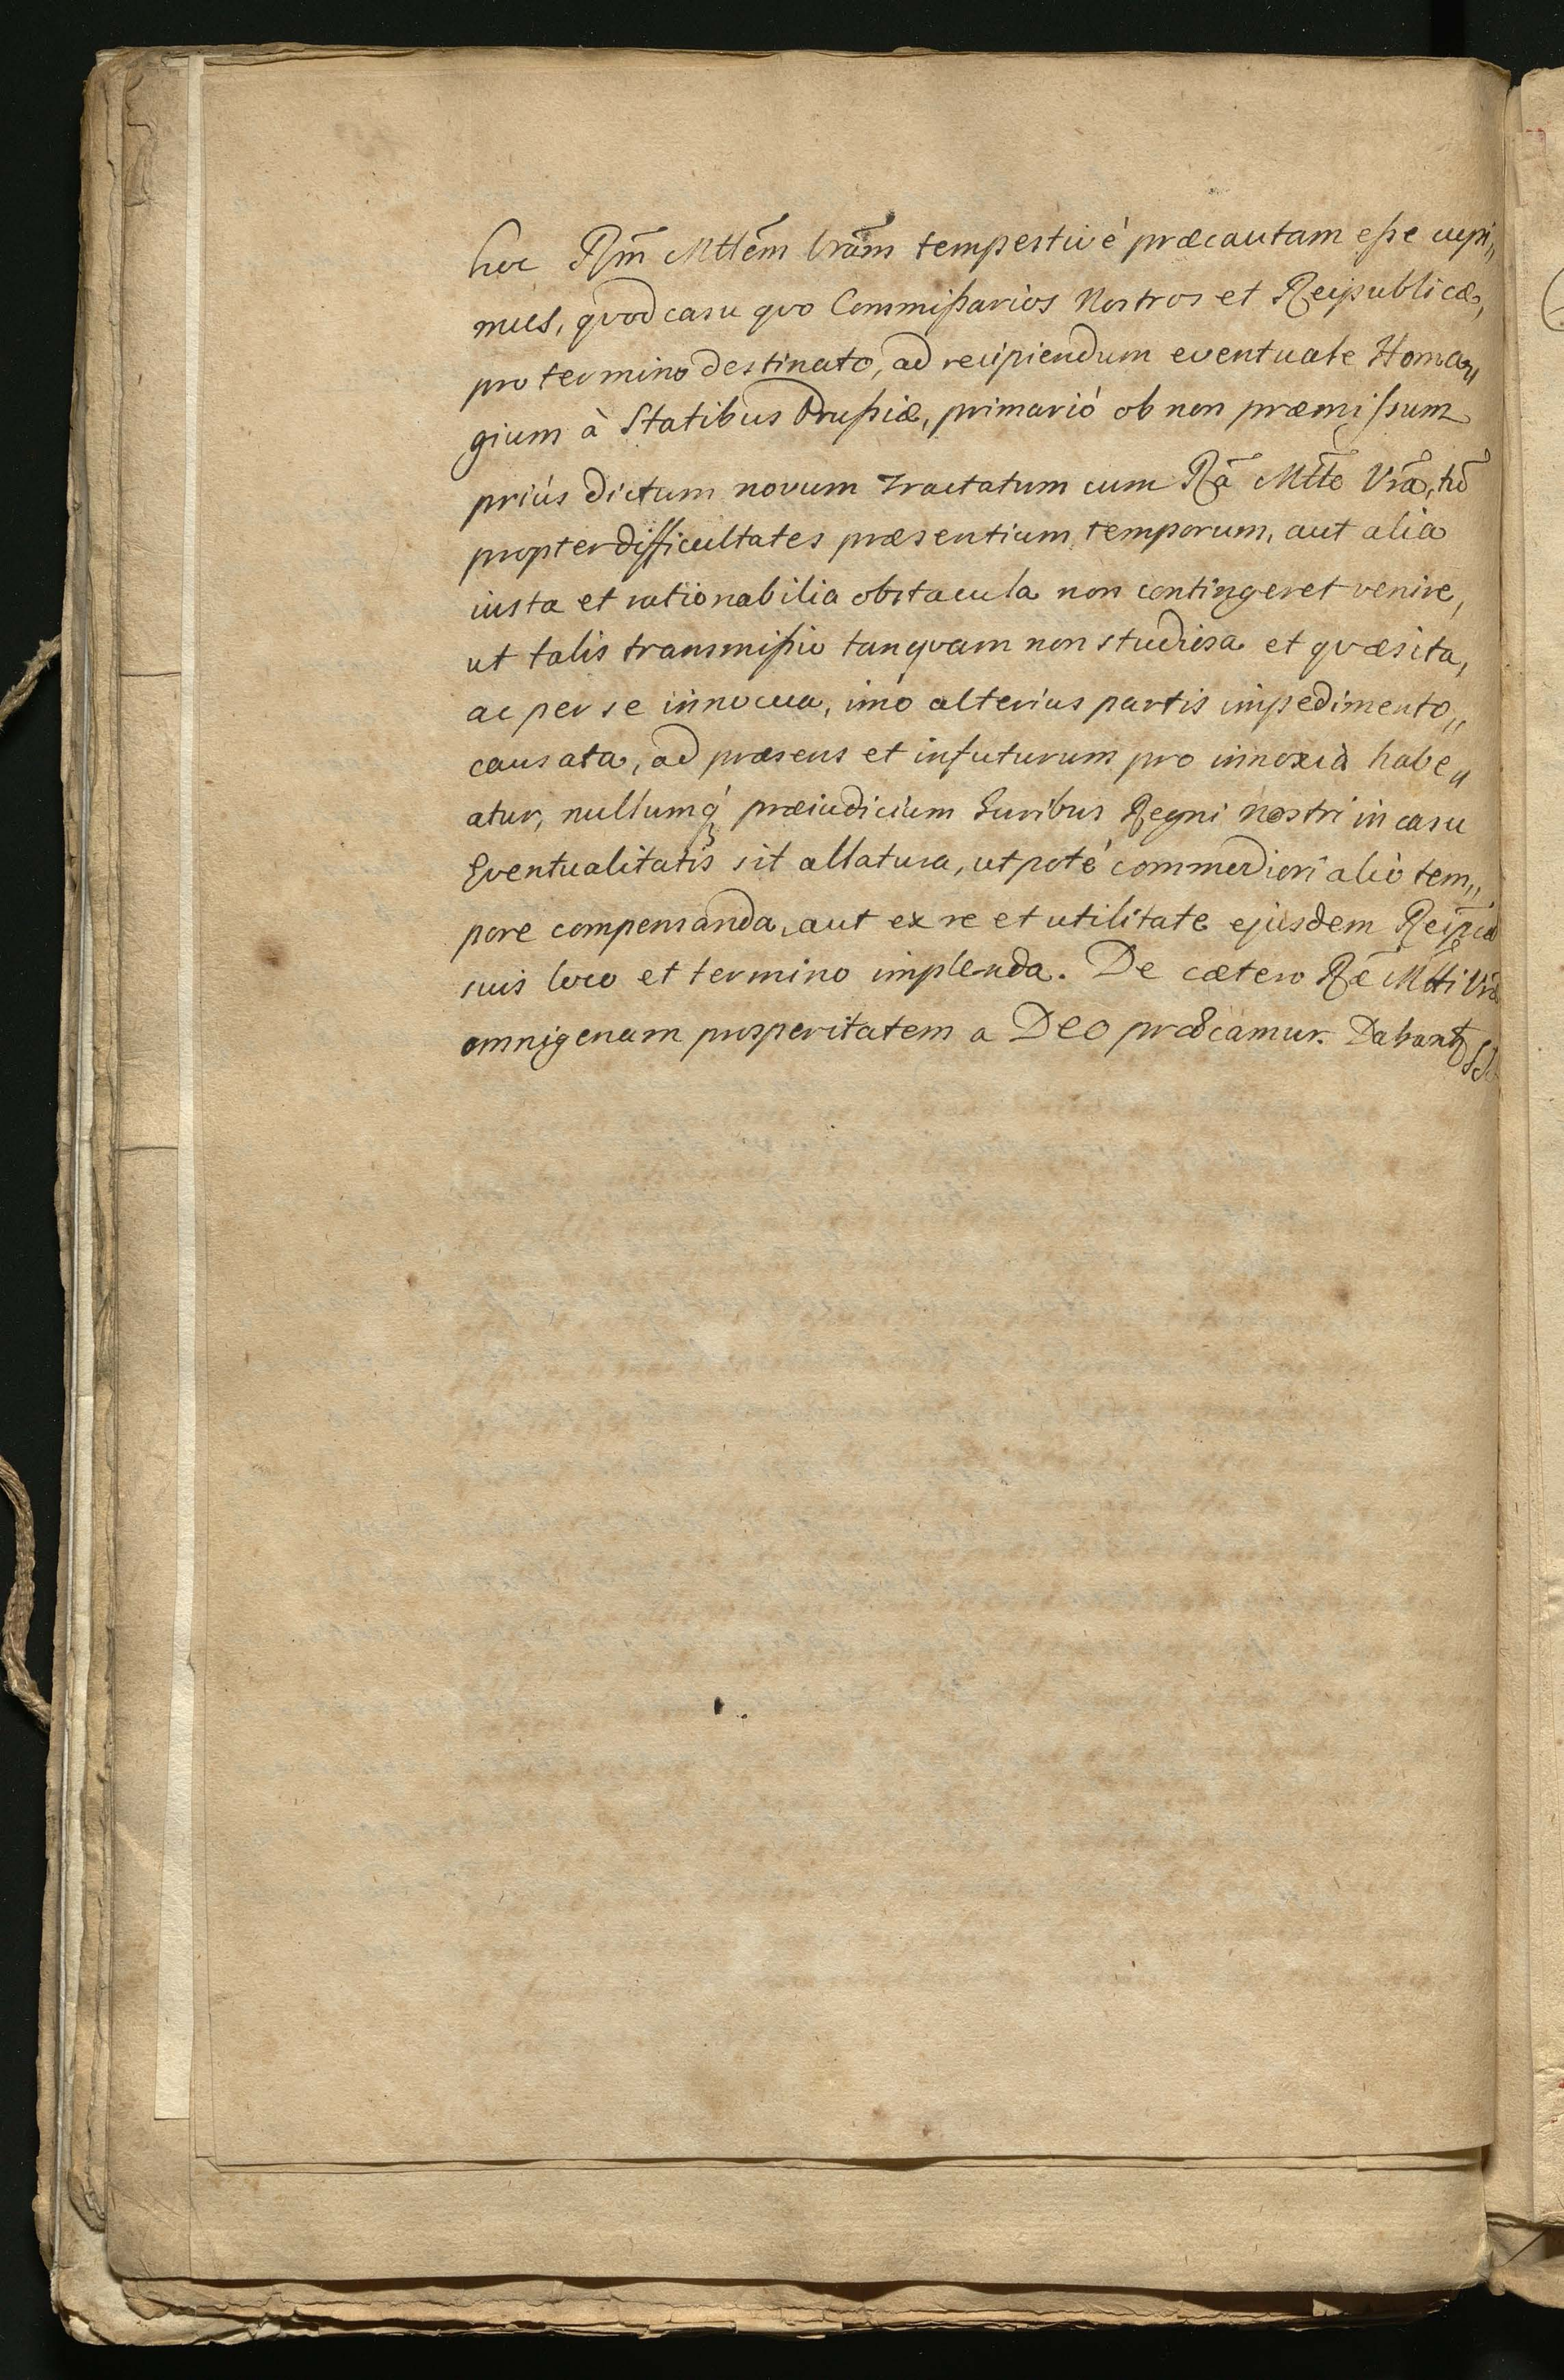 hoc Rm̃ Mttẽm Vrãm tempestivè præcautam eße cupi„
mus, quod casu quo Commißarios Nostros et Reipublicæ,
pro termino destinato, ad recipiendum eventuale Homa„
gium à Statibus Prußiæ, primariò ob non præmißum
priùs dictum novum Tractatum cum Rã Mttẽ Vrã, tũ
propter difficultates præsentium temporum, aut alia
iusta et rationabilia obstacula non contingeret venire,
ut talis transmißio tanquam non studiosa et quæsita,
ac per se innocua, imò alterius partis impedimento„
causata, ad præsens et in futurum pro innoxia habe„
atur, nullumq́ præiudicium Iuribus Regni nostri in casu
Eventualitatis sit allatura, utpotè commodiori aliò tem„
pore compensanda, aut ex re et utilitate ejusdem Reip̃cæ
suis loco et termino implenda. De cætero Ræ̃ Mtti Vræ
omnigenam prosperitatem a DEO præcamur. Dabant